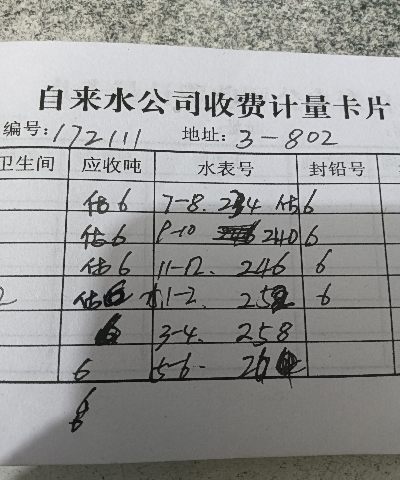 自来水公司收费计量卡片
编号:172111 地址:3-802
卫生间 应收吨 水表号 封铅号
估6 7-8. 234 估6
估6 9-10 240 6
估6 11-12. 246 6
估6 1-2. 252 6
6 3-4. 258
6 5-6-
6